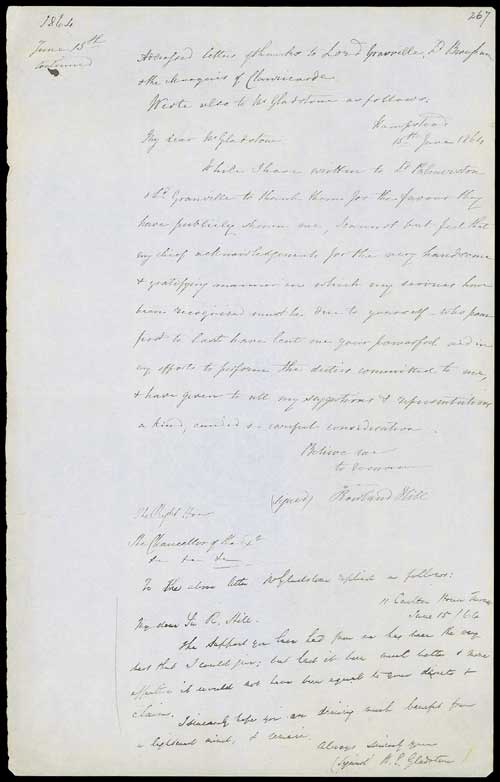 1864
267
June 15th
continued
Addressed letters of thanks to Lord Granville, Ld Brougham
& the Marquis of Clanricarde.
Wrote also to Mr Gladstone as follows:
Hampstead
15th June 1864
My dear Mr Gladstone
While I have written to Ld Palmerston
& Ld Granville to thank them for the favour they
have publicly shown me, I cannot but feel that
my chief acknowledgements for the very handsome
& gratifying manner in which my services have
been recognised must be due to yourself who from
first to last have lent me your powerful aid in
my efforts to perform the duties committed to me,
& have given to all my suggestions & representations
a kind, candid & careful consideration.
Believe me
to remain
(signed) Rowland Hill
The Right Hon
The Chancellor of the Exr
&c &c &c
To the above letter Mr Gladstone replied as follows:
11 Carlton House Terrace
June 15 / 64
My dear Sir R. Hill.
The support you have had from me has been the very
best that I could give; but had it been much better & more
effective it would not have been equal to your deserts &
claims.
I sincerely hope you are deriving much benefit from
a lightened mind, & remain
Always sincerely yours
(signed) W. E. Gladstone